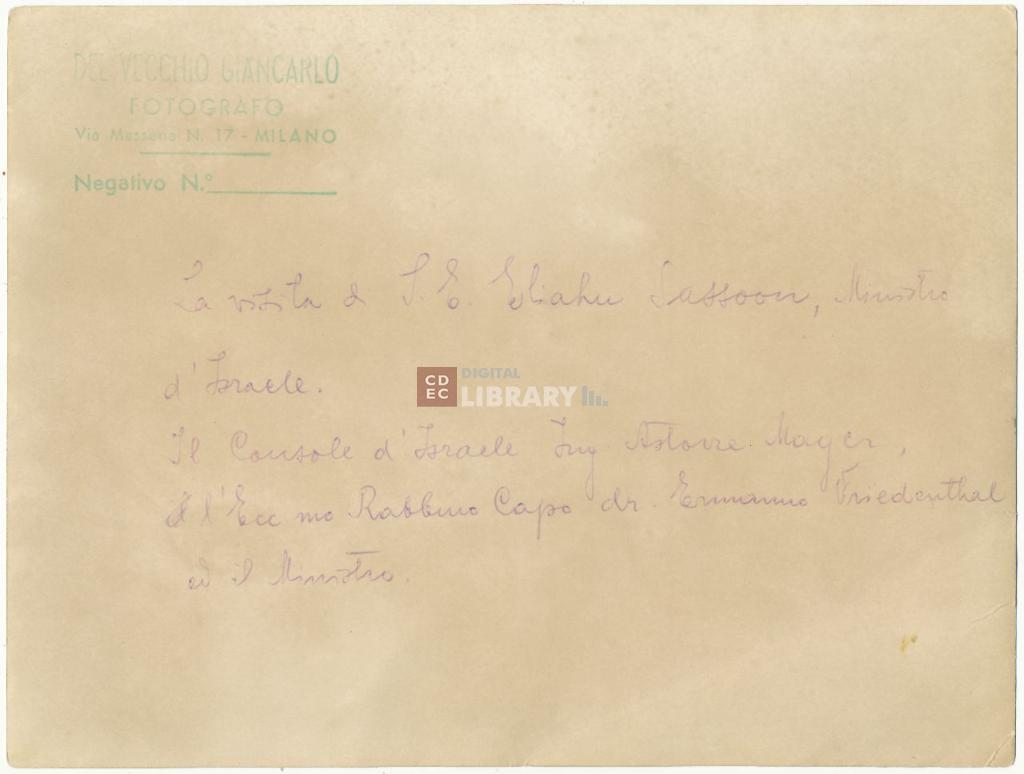 DEL VECCHIO GIANCARLO
FOTOGRAFO
Via Masserio N. 17 - MILANO
Negativo N.º
La visita di S. E. Eliahu Sassoon, Ministro
d'Israele.
CD EC DIGITAL LIBRARY
Il Console d'Israele Ing Astorre Mayer,
l'Ecc mo Rabbino Capo dr. Ermanno Friedenthal
ed il Ministro.